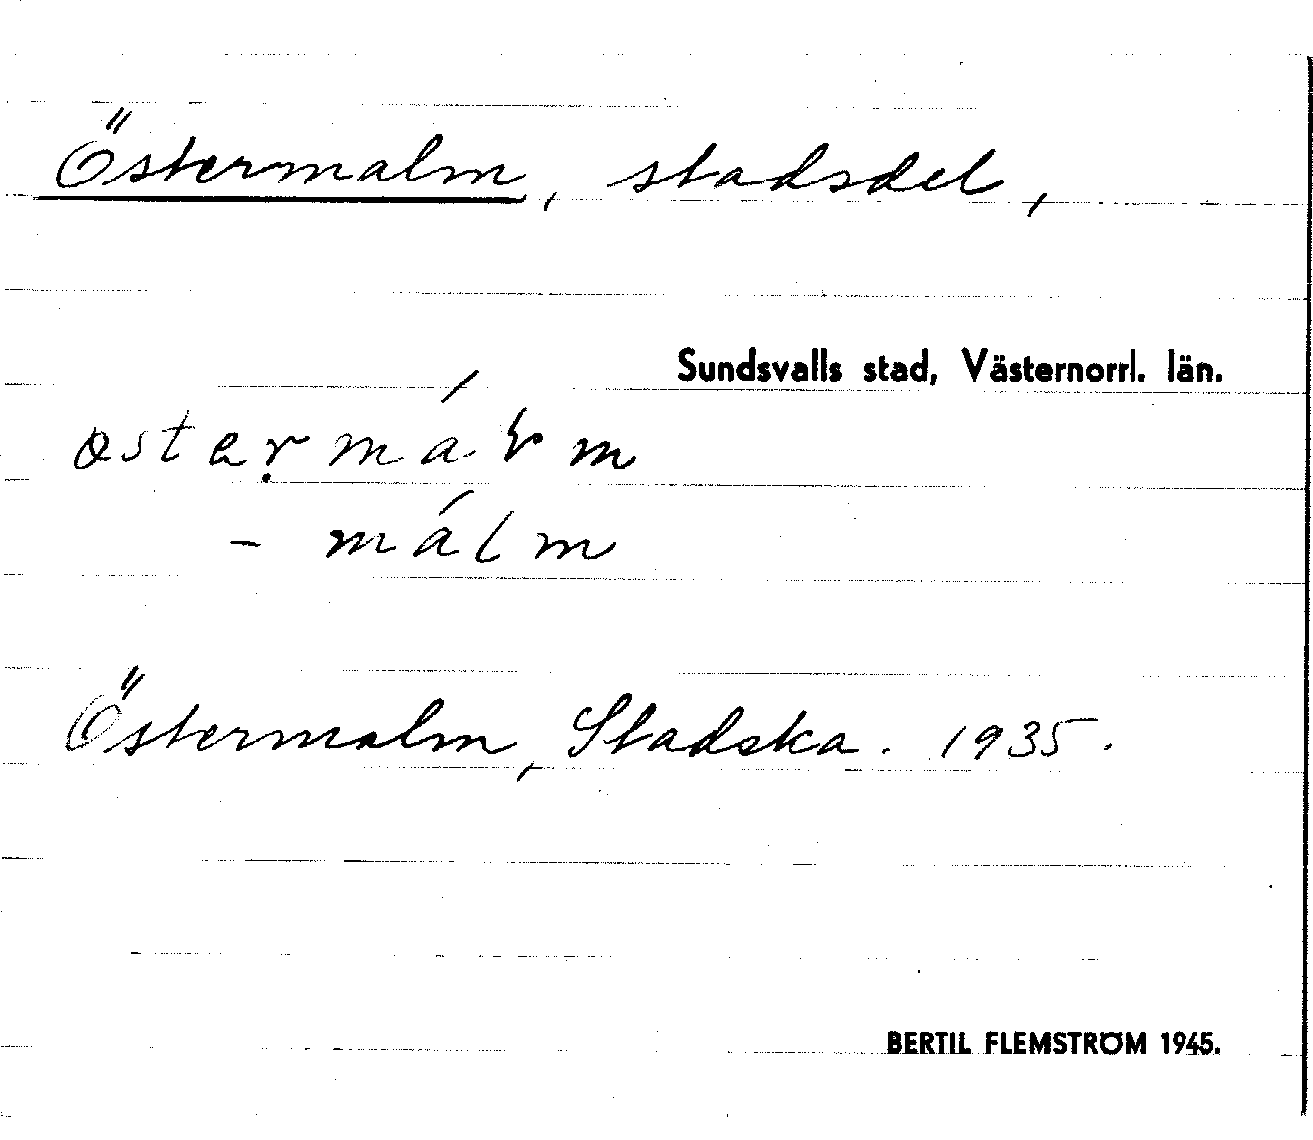 Östermalm, stadsdel,
Sundsvalls stad, Västernorrl. län.
- málm
Östermalm, Stadska. 1935.
BERTIL FLEMSTRÖM 1945.